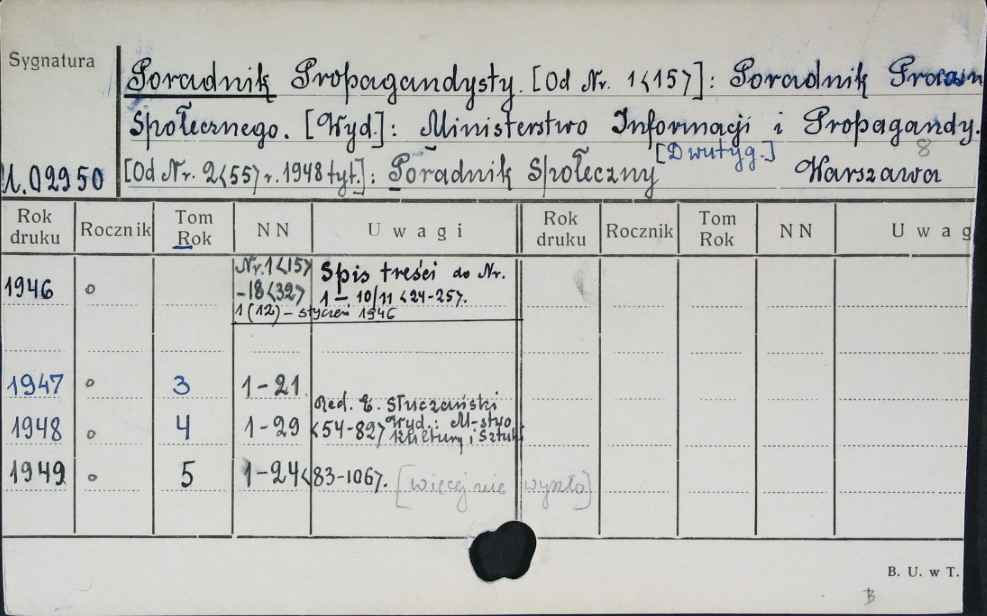 Sygnatura
Poradnik Propagandysty. [Od Nr. 1<15>]: Poradnik
Społecznego. [Wyd.]: Ministerstwo Informacji i Propagandy.
[Dwutyg.] 8
U.02950 [Od Nr. 2<55> r. 1948 tyt.]: Poradnik Społeczny Warszawa
Rok druku Rocznik Tom Rok NN Uwagi Rok druku Rocznik Tom Rok NN Uwag
1946 o Nr. 1<15> -18<32> Spis treści do Nr.
1 – 10/11 <24-25>.
1 (12) – styczeń 1946
1947 o 3 1-21
Red. E. Słuczański
1948 o 4 1-29 <54-82> Wyd.: M-stwo
Kultury i Sztuki
1949 o 5 1-24 <83-106>. [więcej nie wyszło]
B. U. w T.
B